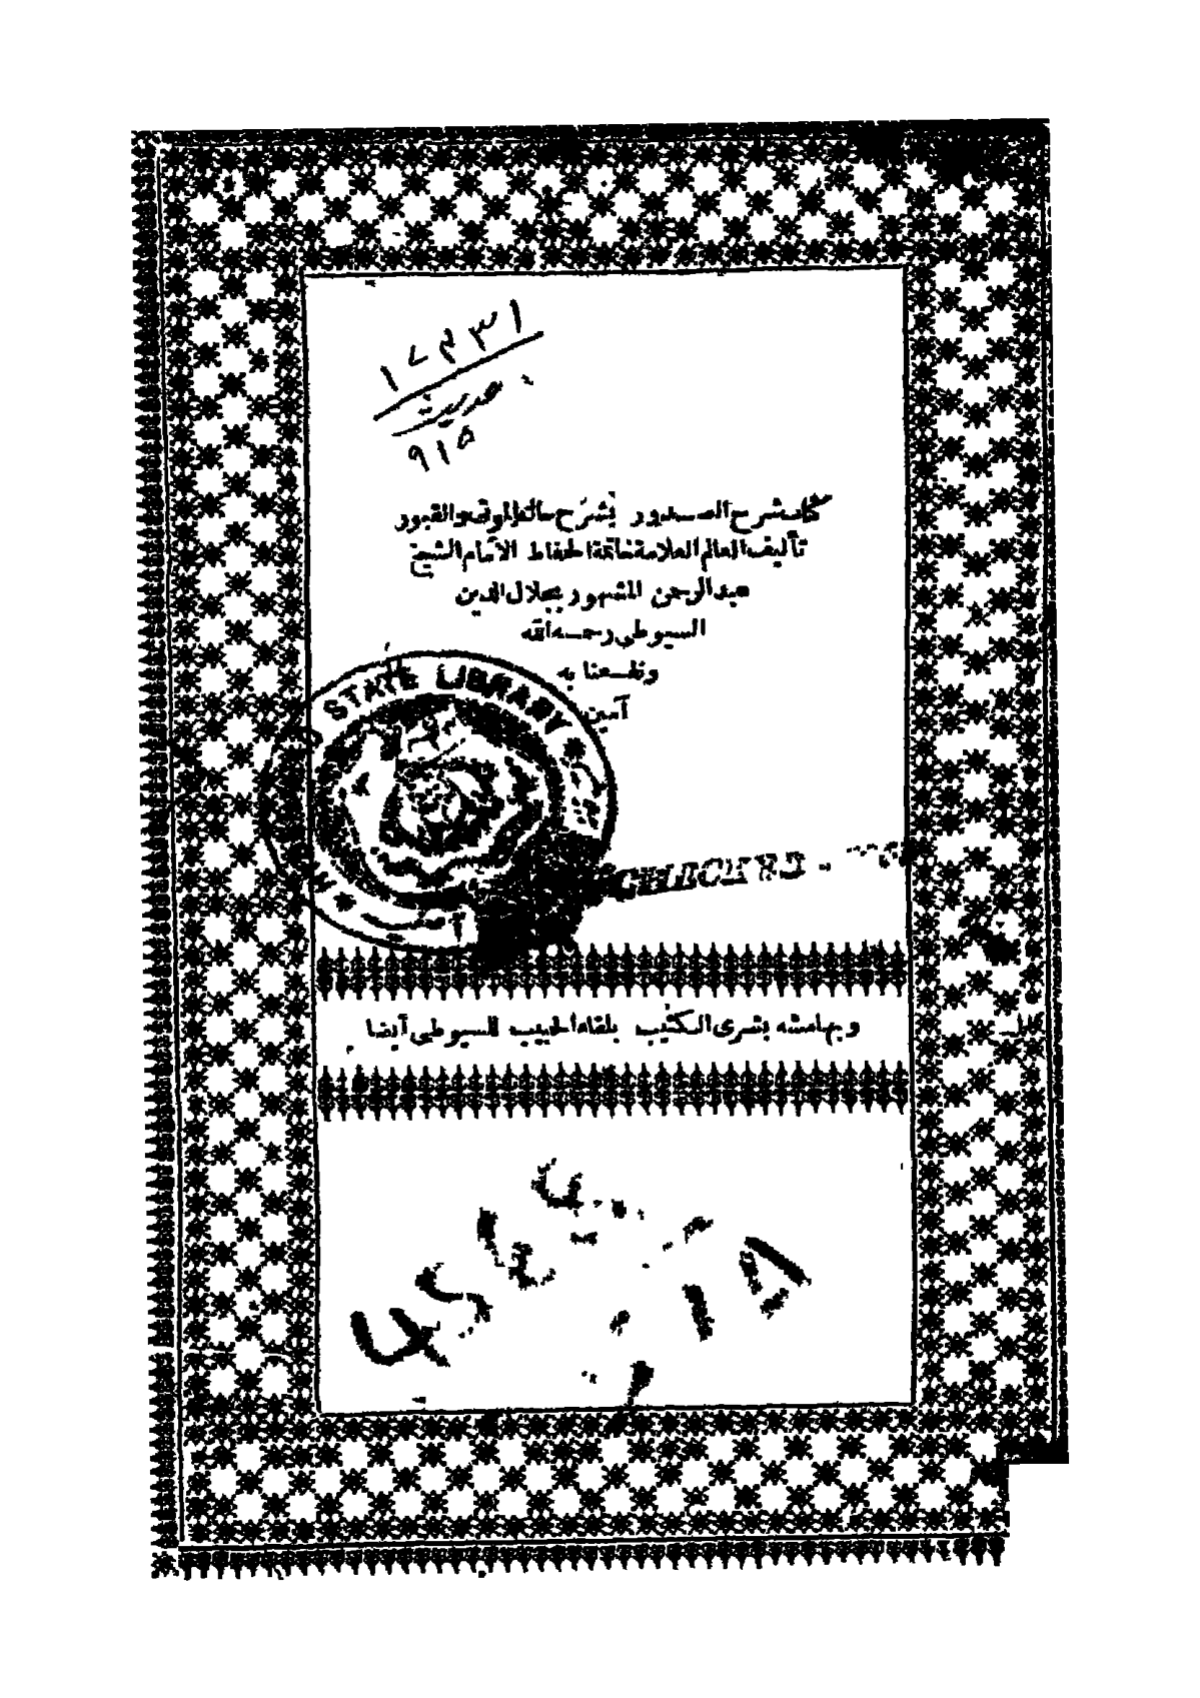 ١٧٣٣١
حديث
٩١٥
كتاب شرح الصدور بشرح حال الموتى والقبور
تأليف العالم العلامة خاتمة الحفاظ الامام الشيخ
عبد الرحمن المشهور بجلال الدين
السيوطى رحمه الله
ونفعنا به
آمين
STATE LIBRARY
آصفيه
CHECKED
وبهامشه بشرى الكئيب بلقاء الحبيب للسيوطى أيضا